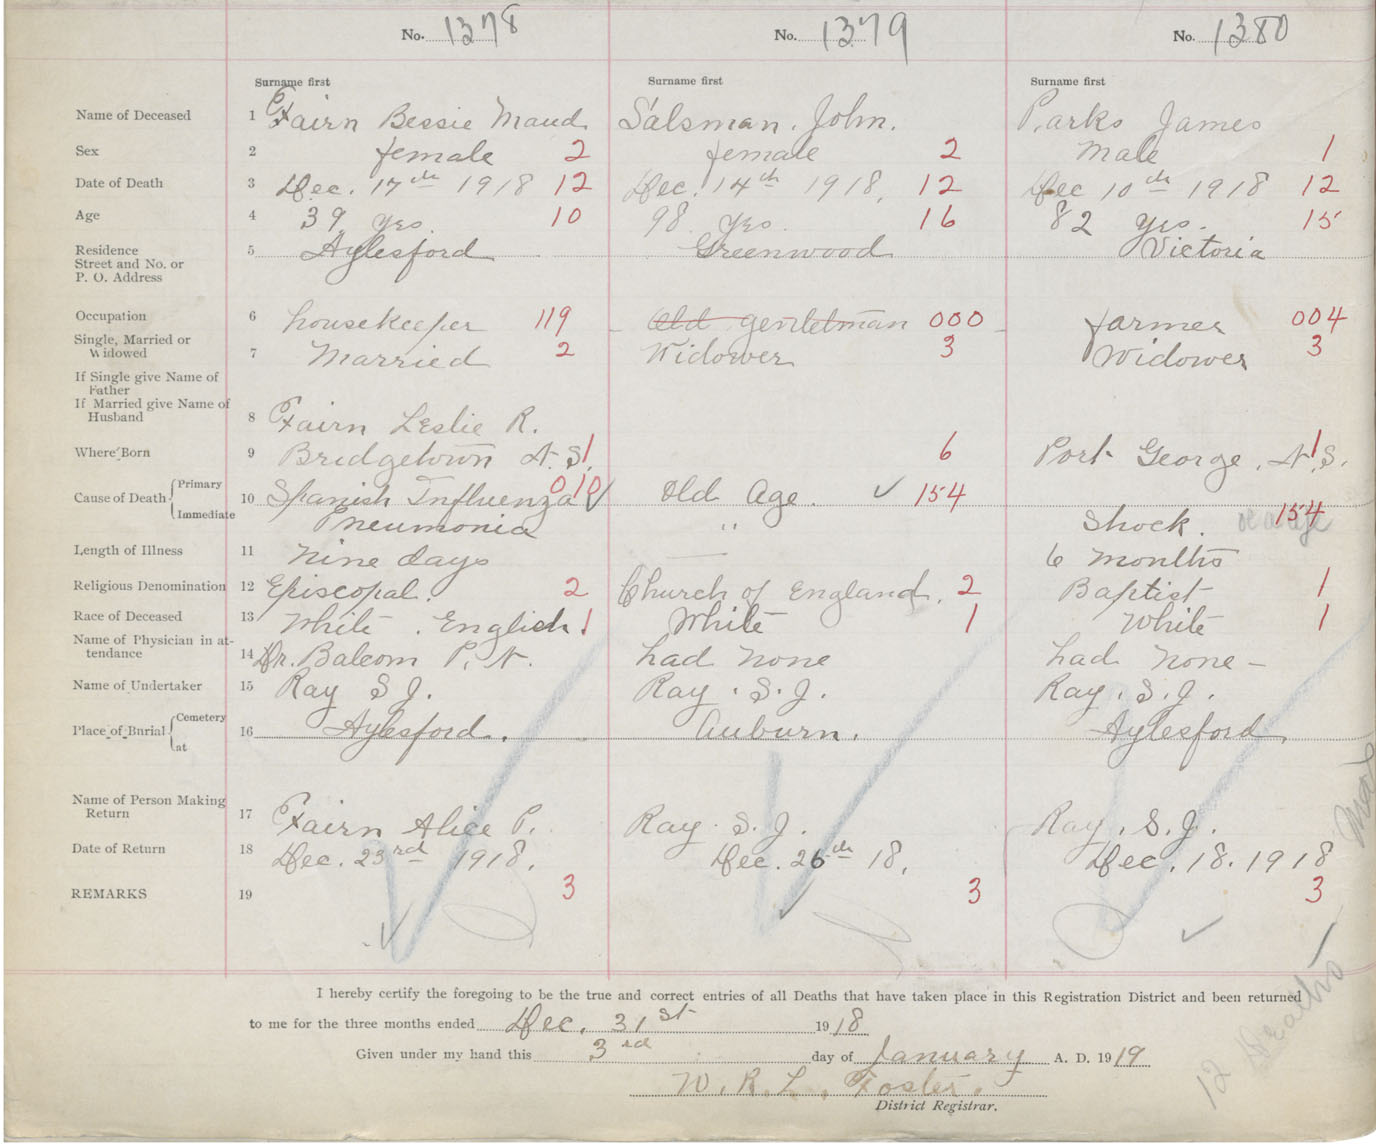 No. 1378 No. 1379 No. 1380
Surname first Surname first Surname first
Name of Deceased 1 Fairn Bessie Maud Salsman. John. Parks James
Sex 2 female 2 female 2 Male 1
Date of Death 3 Dec. 17th 1918 12 Dec. 14th 1918. 12 Dec 10th 1918 12
Age 4 39 yrs. 10 98 yrs. 16 82 yrs. 15
Residence
Street and No. or
P. O. Address 5 Aylesford Greenwood Victoria
Occupation 6 housekeeper 119 Old gentleman 000 farmer 004
Single, Married or
Widowed 7 Married 2 Widower 3 Widower 3
If Single give Name of
Father
If Married give Name of
Husband 8 Fairn Leslie R.
Where Born 9 Bridgetown N.S. 1 6 Port George, N.S. 1
Cause of Death { Primary 10 Spanish Influenza 010 ✓ Old Age. ✓ 154
Immediate Pneumonia " Shock. old age 154
Length of Illness 11 Nine days — 6 months
Religious Denomination 12 Episcopal. 2 Church of England. 2 Baptist 1
Race of Deceased 13 White. English. 1 White 1 White 1
Name of Physician in at-
tendance 14 Dr. Balcom P. N. had none had none –
Name of Undertaker 15 Ray S J. Ray. S. J. Ray. S. J.
Place of Burial { Cemetery
at 16 Aylesford. Auburn. Aylesford
Name of Person Making
Return 17 Fairn Alice P. Ray. S. J. Ray. S. J.
Date of Return 18 Dec. 23rd 1918. Dec. 26th 18. Dec. 18. 1918
REMARKS 19 3 3 3
I hereby certify the foregoing to be the true and correct entries of all Deaths that have taken place in this Registration District and been returned
to me for the three months ended Dec. 31st 1918
Given under my hand this 3rd day of January A. D. 1919
W. R. L. Foster.
District Registrar.
12 Deaths